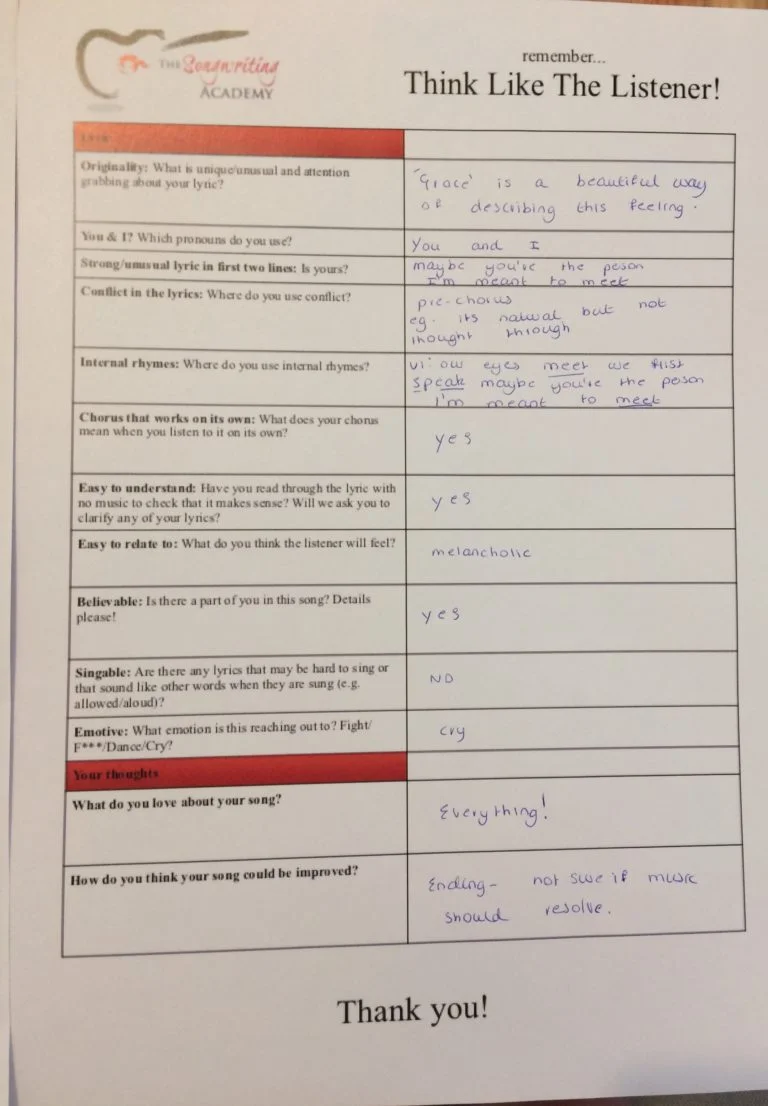 THE Songwriting
ACADEMY
remember...
Think Like The Listener!
Lyric
Originality: What is unique/unusual and attention
grabbing about your lyric?
'Grace' is a beautiful way
of describing this feeling.
You & I? Which pronouns do you use?
You and I
Strong/unusual lyric in first two lines: Is yours?
maybe you're the person
I'm meant to meet
Conflict in the lyrics: Where do you use conflict?
pre-chorus
eg. its natural but not
thought through
Internal rhymes: Where do you use internal rhymes?
V1: our eyes meet we first
speak maybe you're the person
I'm meant to meet
Chorus that works on its own: What does your chorus
mean when you listen to it on its own?
yes
Easy to understand: Have you read through the lyric with
no music to check that it makes sense? Will we ask you to
clarify any of your lyrics?
yes
Easy to relate to: What do you think the listener will feel?
melancholic
Believable: Is there a part of you in this song? Details
please!
yes
Singable: Are there any lyrics that may be hard to sing or
that sound like other words when they are sung (e.g.
allowed/aloud)?
NO
Emotive: What emotion is this reaching out to? Fight/
F***/Dance/Cry?
cry
Your thoughts
What do you love about your song?
Everything!
How do you think your song could be improved?
Ending- not sure if music
should resolve.
Thank you!